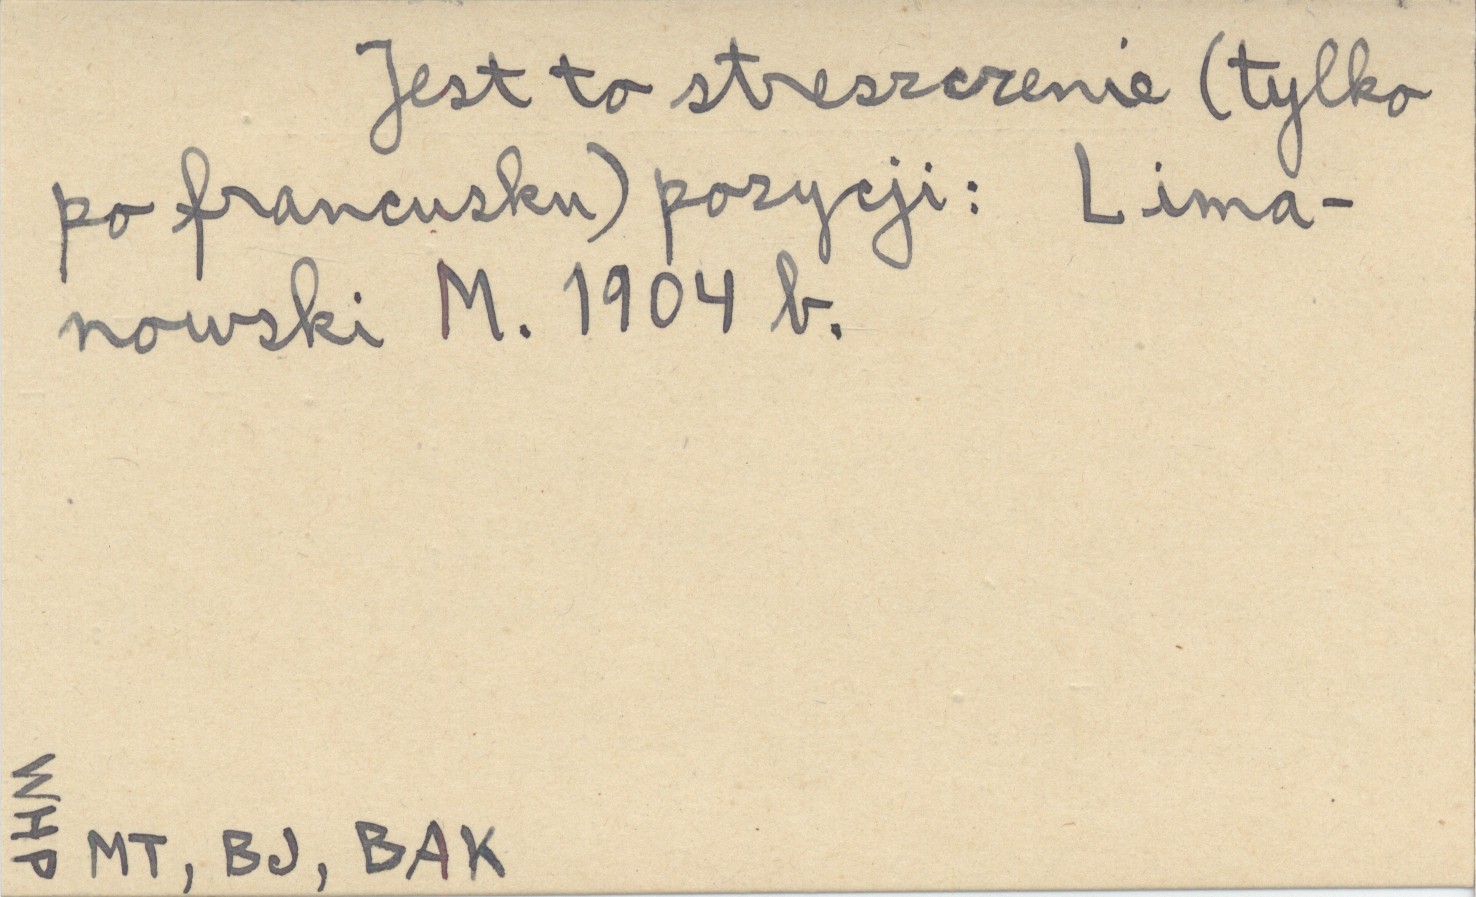 Jest to streszczenie (tylko
po francusku) pozycji: Lima-
nowski M. 1904 b.
WHP
MT, BJ, BAK